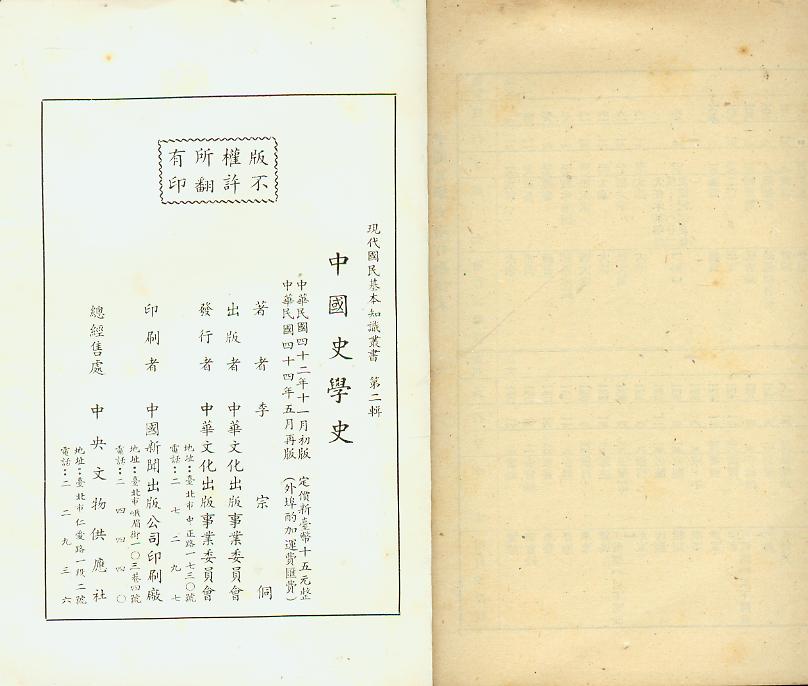 版權所有
不許翻印
現代國民基本知識叢書　第二輯
中國史學史
中華民國四十二年十一月初版　定價新臺幣十五元整
中華民國四十四年五月再版　（外埠酌加運費匯費）
著者　李宗侗
出版者　中華文化出版事業委員會
發行者　中華文化出版事業委員會
地址：臺北市中正路一七三〇號
電話：二七二九七
印刷者　中國新聞出版公司印刷廠
地址：臺北市峨眉街一〇三巷四號
電話：二四四四〇
總經售處　中央文物供應社
地址：臺北市仁愛路一段二號
電話：二二九三六